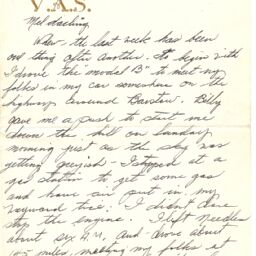 V.A.S.
Mel darling,
Whew, the last week has been
one thing after another. To begin with
I drove the model "B" to meet my
folks in my car somewhere on the
highway around Barstow. Billy
gave me a push to start me
down the hill on Sunday
morning just as the sky was
getting greyish - I stopped at a
gas station to get some gas
and have air put in my
wayward tire; I didn't dare
stop the engine. I left Needles
about six A.M. and drove about
105 miles, meeting my folks at